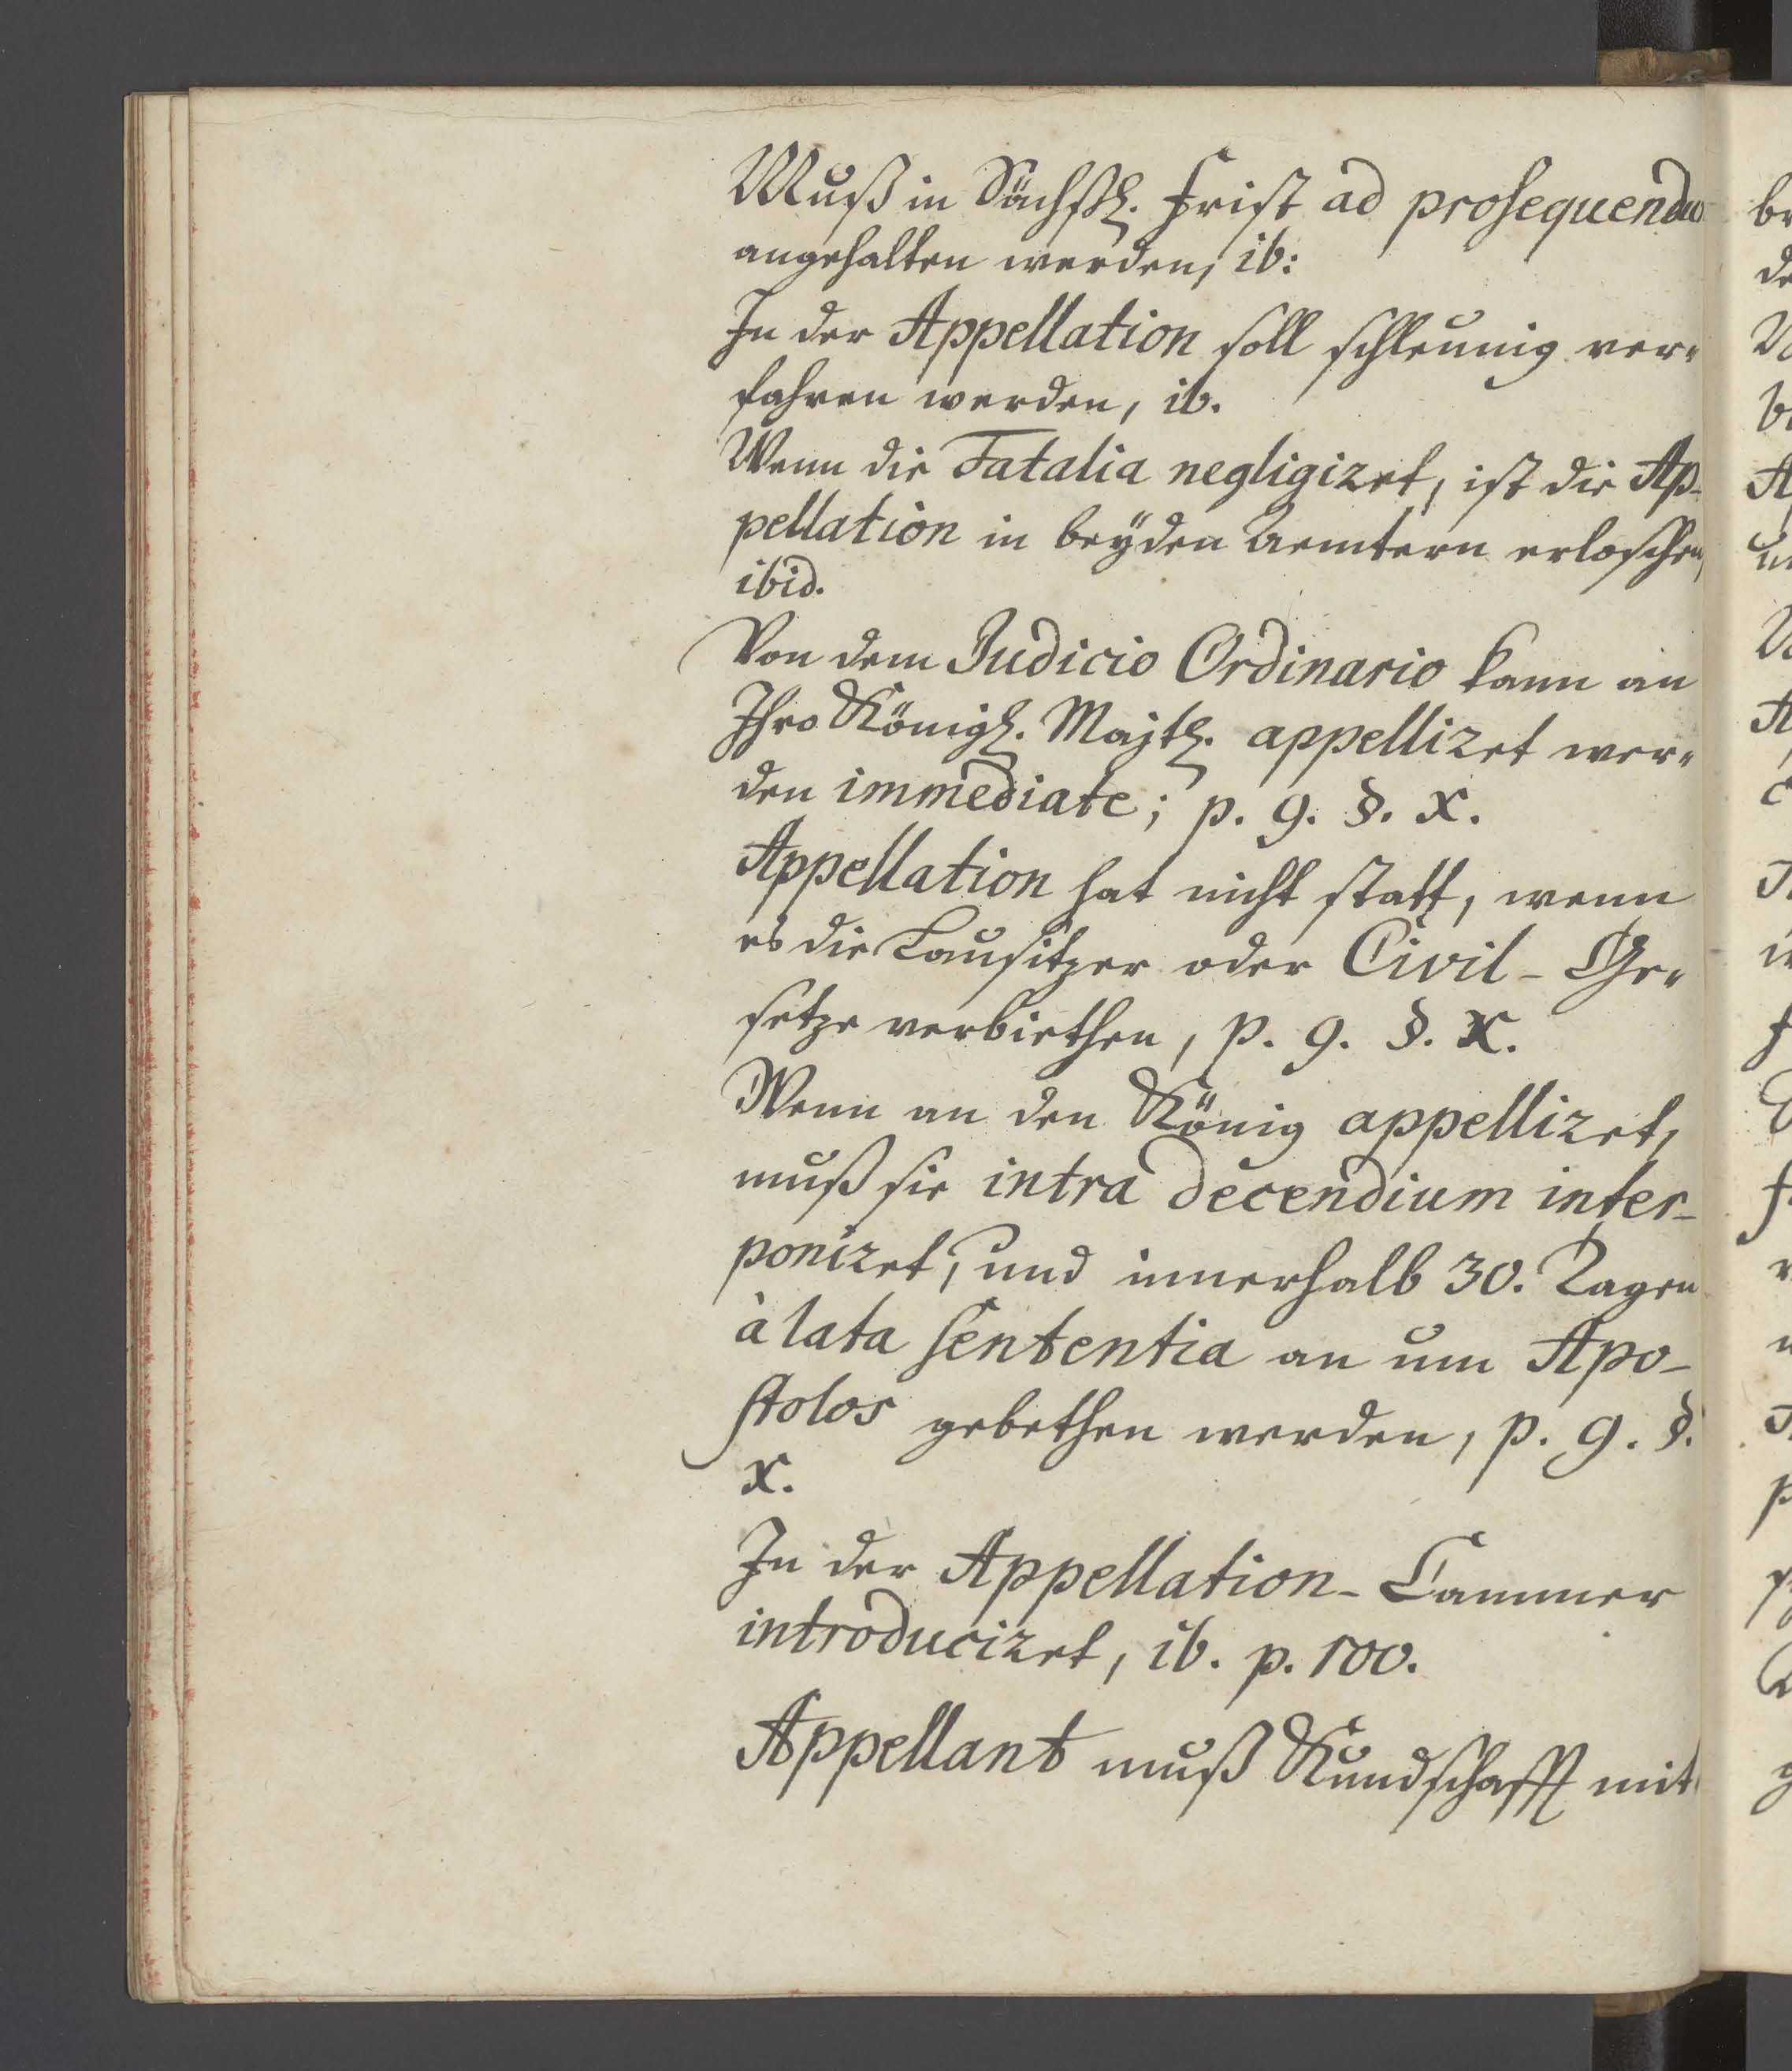 Muß in Sächßl. Frist ad prosequendu
angehalten werden, ib:
In der Appellation soll schleunig ver-
fahren werden, ib.
Wenn die Fatalia negligiret, ist die Ap-
pellation in beÿden Aemtern erloschen,
ibid.
Von dem Judicio Ordinario kann an
Ihro Königl. Majtl. appelliret wer-
den immediate; p. 9. §. X.
Appellation hat nicht statt, wenn
es die Lausitzer oder Civil-Ge-
setze verbiethen, p. 9. §. X.
Wenn an den König appelliret,
muß sie intra decendium inter-
poniret, und innerhalb 30. Tagen
à lata sententia an um Apo-
stolos gebethen werden, p. 9. §.
X.
In der Appellation-Cammer
introduciret, ib. p. 100.
Appellant muß Kundschafft mit